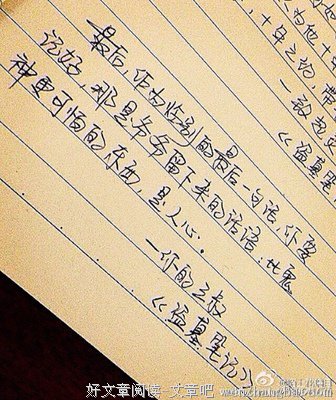 为他下
十年之约,
一致起灵
《盗墓笔
一最后,作为性别的最后一句话,你要
记好,那是爷爷留下来的话语:比鬼
神更可怕的东西,是人心.
一你的三叔
《盗墓笔记》
好文章阅读-文章吧